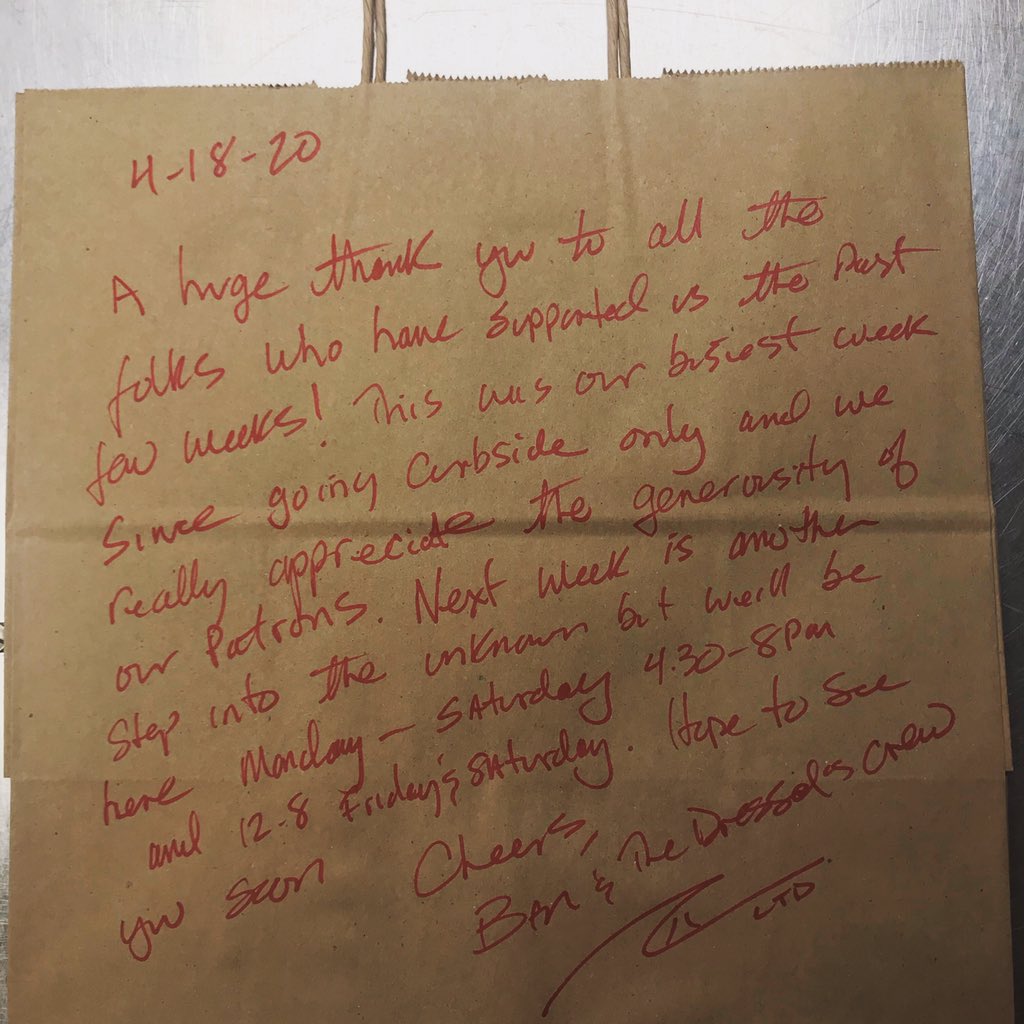 4-18-20
A huge thank you to all the
folks who have supported us the past
few weeks! This was our busiest week
Since going Curbside only and we
really appreciate the generousity of
our Patrons. Next week is another
Step into the unknown but we'll be
here Monday - Saturday 4:30-8pm
and 12-8 Friday & Saturday. Hope to See
you soon Cheers,
Ben & The Dressel's Crew
LTD